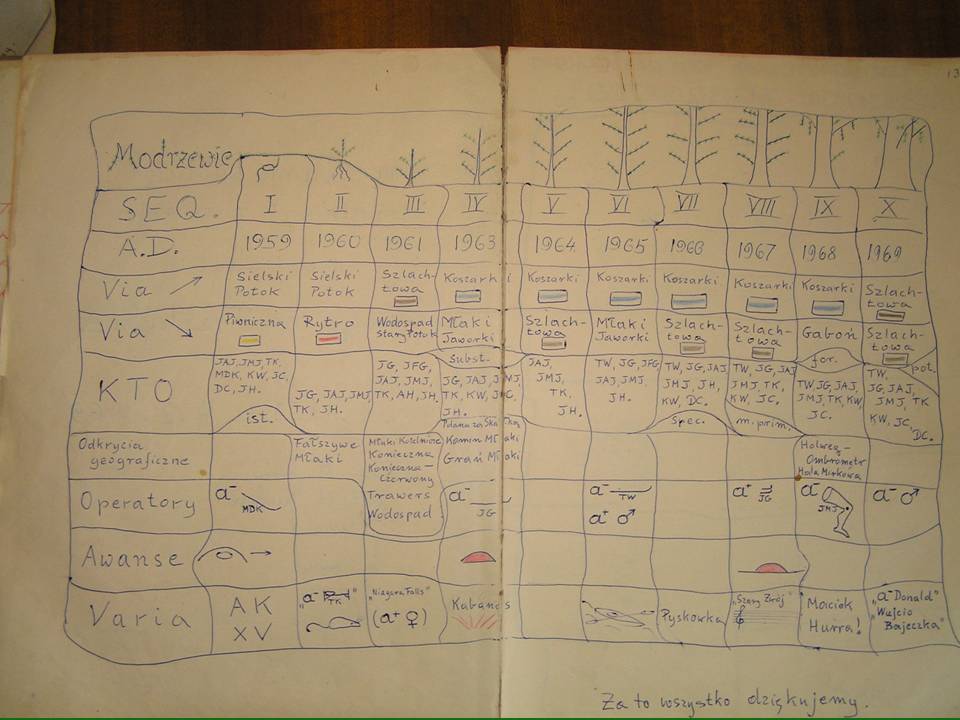 13
Modrzewie
SEQ. I II III IV V VI VII VIII IX X
A.D. 1959 1960 1961 1963 1964 1965 1966 1967 1968 1969
Via ↗ Sielski Sielski Szlach- Koszarki Koszarki Koszarki Koszarki Koszarki Koszarki Szlach-
Potok Potok towa towa
Via ↘ Piwniczna Rytro Wodospad Młaki Szlach- Młaki Szlach- Szlach- Gaboń Szlach-
Stary Potok Jaworki towa Jaworki towa towa towa
subst. for. pot.
KTO
JAJ, JMJ, TK,
MDK, KW, JC,
DC, JH.
ist.
JG, JAJ, JMJ
TK, JH.
JG, JFG,
JAJ, JMJ,
TK, AH, JH.
JG, JAJ, JMJ,
TK, KW, JC,
JH.
JAJ,
JMJ,
TK,
JH.
TW, JG, JFG
JAJ, JMJ,
JH.
TW, JG, JAJ
JMJ, JH,
KW, DC.
spec.
TW, JG, JAJ
JMJ, TK,
KW, JC.
m. prim.
TW, JG, JAJ,
JMJ, TK, KW,
JC.
TW,
JG, JAJ,
JMJ, TK
KW, JC,
DC.
Odkrycia
geograficzne
Fałszywe
Młaki
Młaki Kozielnicze
Konieczna
Konieczna-
Czerwony
Trawers
Wodospad
Polana za Ska
Komin Młaki
Grań Młaki
Holweg-
Ombrometr
Hala Mirkowa
Operatory a⁻ MDK a⁻ JG a⁻ TW a⁺ JG a⁻ JMJ a⁻ ♂
a⁺ ♂
Awanse →
Varia AK "a⁻ TK" "Niagara Falls" Kabanos Pyskówka "Szary Zdrój" Maciek "a⁻ Donald"
XV (a⁺ ♀) Hurra! "Wujcio
Bajeczka"
Za to wszystko dziękujemy.